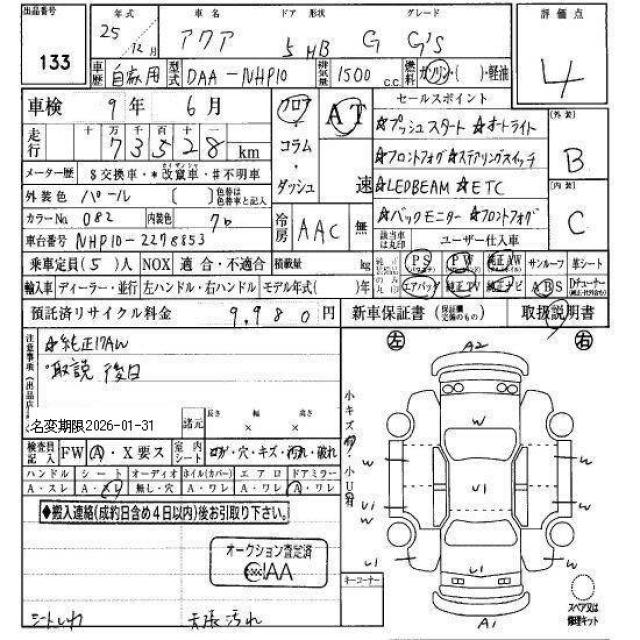 出品番号 年式 車名 ドア 形状 グレード 評価点
133 25年 12月 アクア 5 HB G G'S 4
車歴 自家用 型式 DAA-NHP10 排気量 1500 c.c. 燃料 ガソリン・( )・軽油
車検 9年 6月 フロア・コラム・ダッシュ AT 速 セールスポイント
走行 十 万 千 百 十 一
73528 km
☆プッシュスタート ☆オートライト
☆フロントフォグ ☆ステアリングスイッチ
☆LEDBEAM ☆ETC
☆バックモニター ☆フロントフォグ
外装 B
内装 C
メーター歴 $交換車・*改竄車・#不明車
外装色 パール 〔 〕色替は色替車と記入
カラーNo. 082 内装色 クロ
冷房 AAC 無
車台番号 NHP10-2278853
該当車は丸印 ユーザー仕入車
乗車定員(5)人 NOX 適合・不適合 積載量 kg
PS PW 純正AW サンルーフ 革シート
輸入車 ディーラー・並行 左ハンドル・右ハンドル モデル年式( )年
エアバッグ 純正TV 純正ナビ ABS Dチューナー
預託済リサイクル料金 9,980円 新車保証書 取扱説明書
注意事項
☆純正17AW
取説 後日
名変期限2026-01-31
諸元 長さ 幅 高さ
× ×
検査員記入 FW A・X要ス 室内シート コゲ・穴・キズ・汚れ・破れ
ハンドル シート オーディオ ホイル(カバー) エアロ ドアミラー
A・スレ A・スレ 無し・穴 A・ワレ A・ワレ A・ワレ
◆搬入連絡(成約日含め4日以内)後お引取り下さい。
オークション査定済
CIAA
シートしわ 天張汚れ
左 右
A2
W
W W
U1
U1 W
W
U1 W
U1
A1
キーコーナー
スペア又は
修理キット